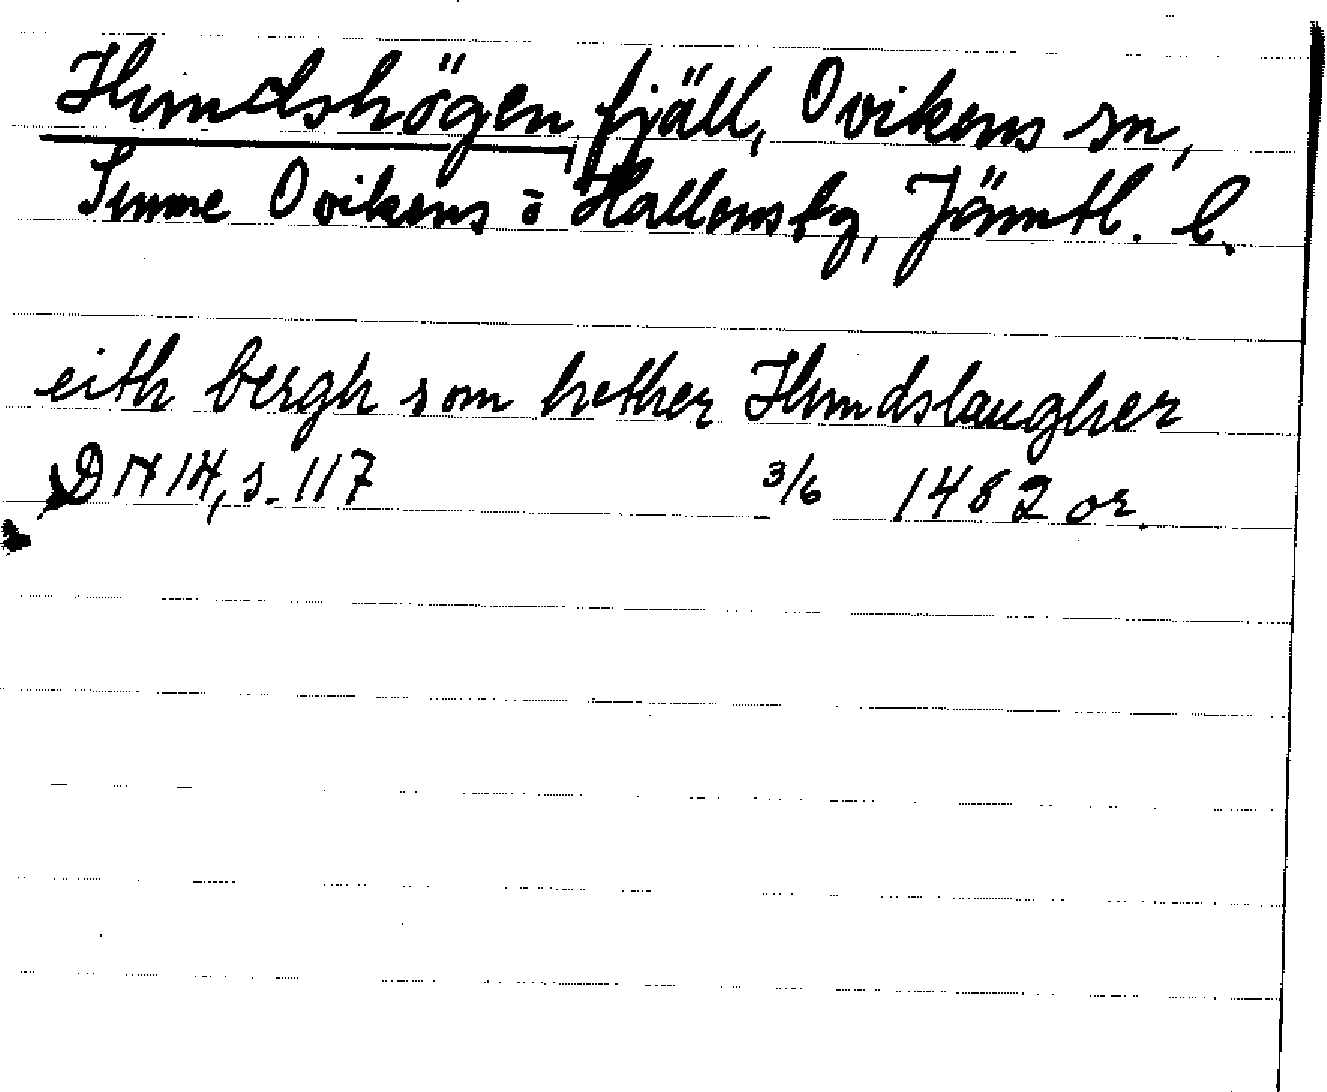 Hundshögen, fjäll, Ovikens sn,
Sunne Ovikens o Hallens tg, Jämtl. l.
eith bergh som hether Hundslaugher
DN 14, s. 117 3/6 1482 or.